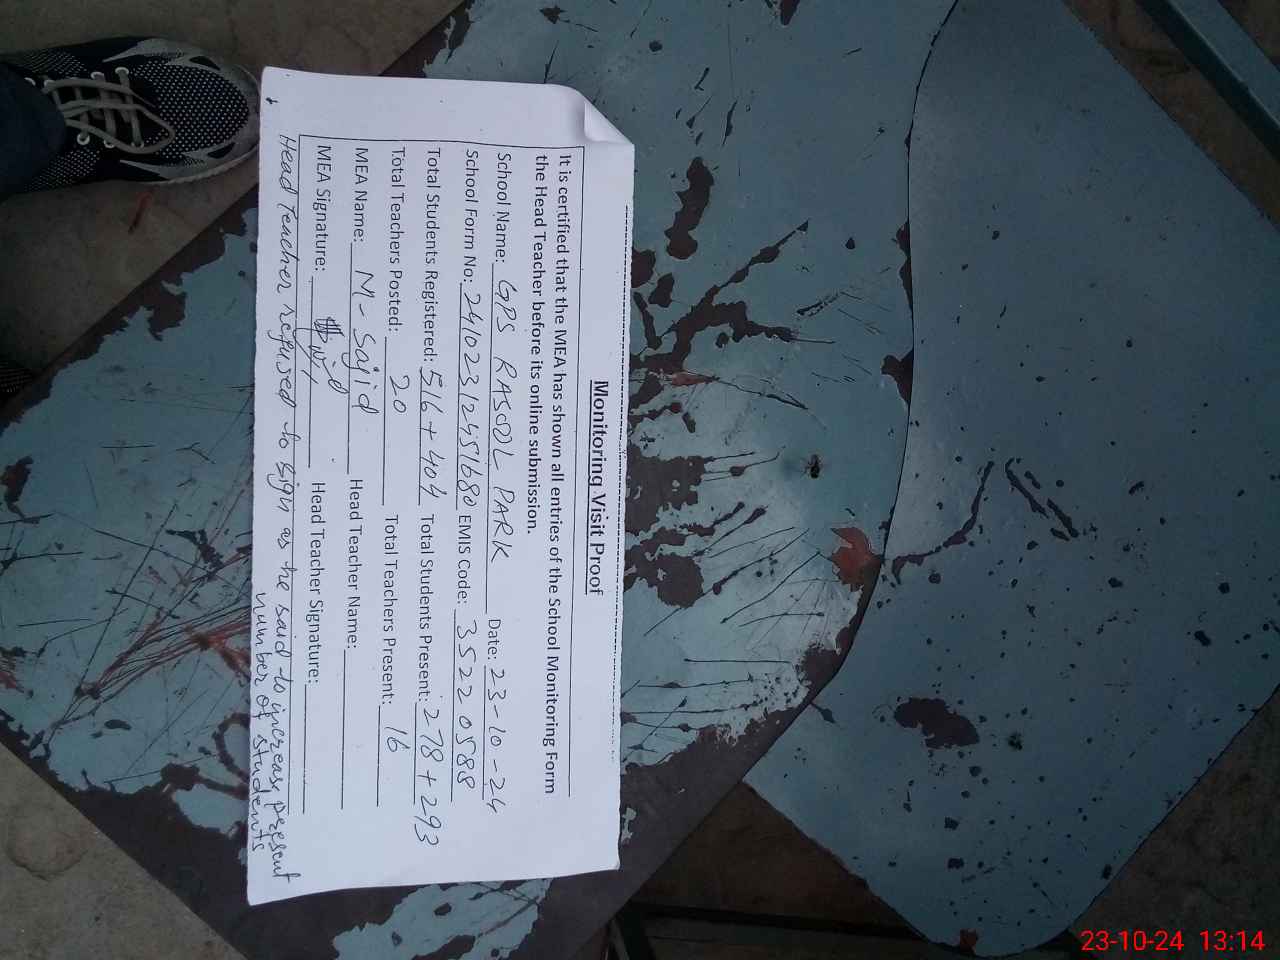 Monitoring Visit Proof
It is certified that the MEA has shown all entries of the School Monitoring Form
the Head Teacher before its online submission.
School Name: GPS RASOOL PARK Date: 23-10-24
School Form No: 24102312451680 EMIS Code: 35220588
Total Students Registered: 516 + 404 Total Students Present: 278 + 293
Total Teachers Posted: 20 Total Teachers Present: 16
MEA Name: M- Sajid Head Teacher Name:
MEA Signature: Head Teacher Signature:
Head Teacher refused to sign as he said to increase present
number of students
23-10-24 13:14